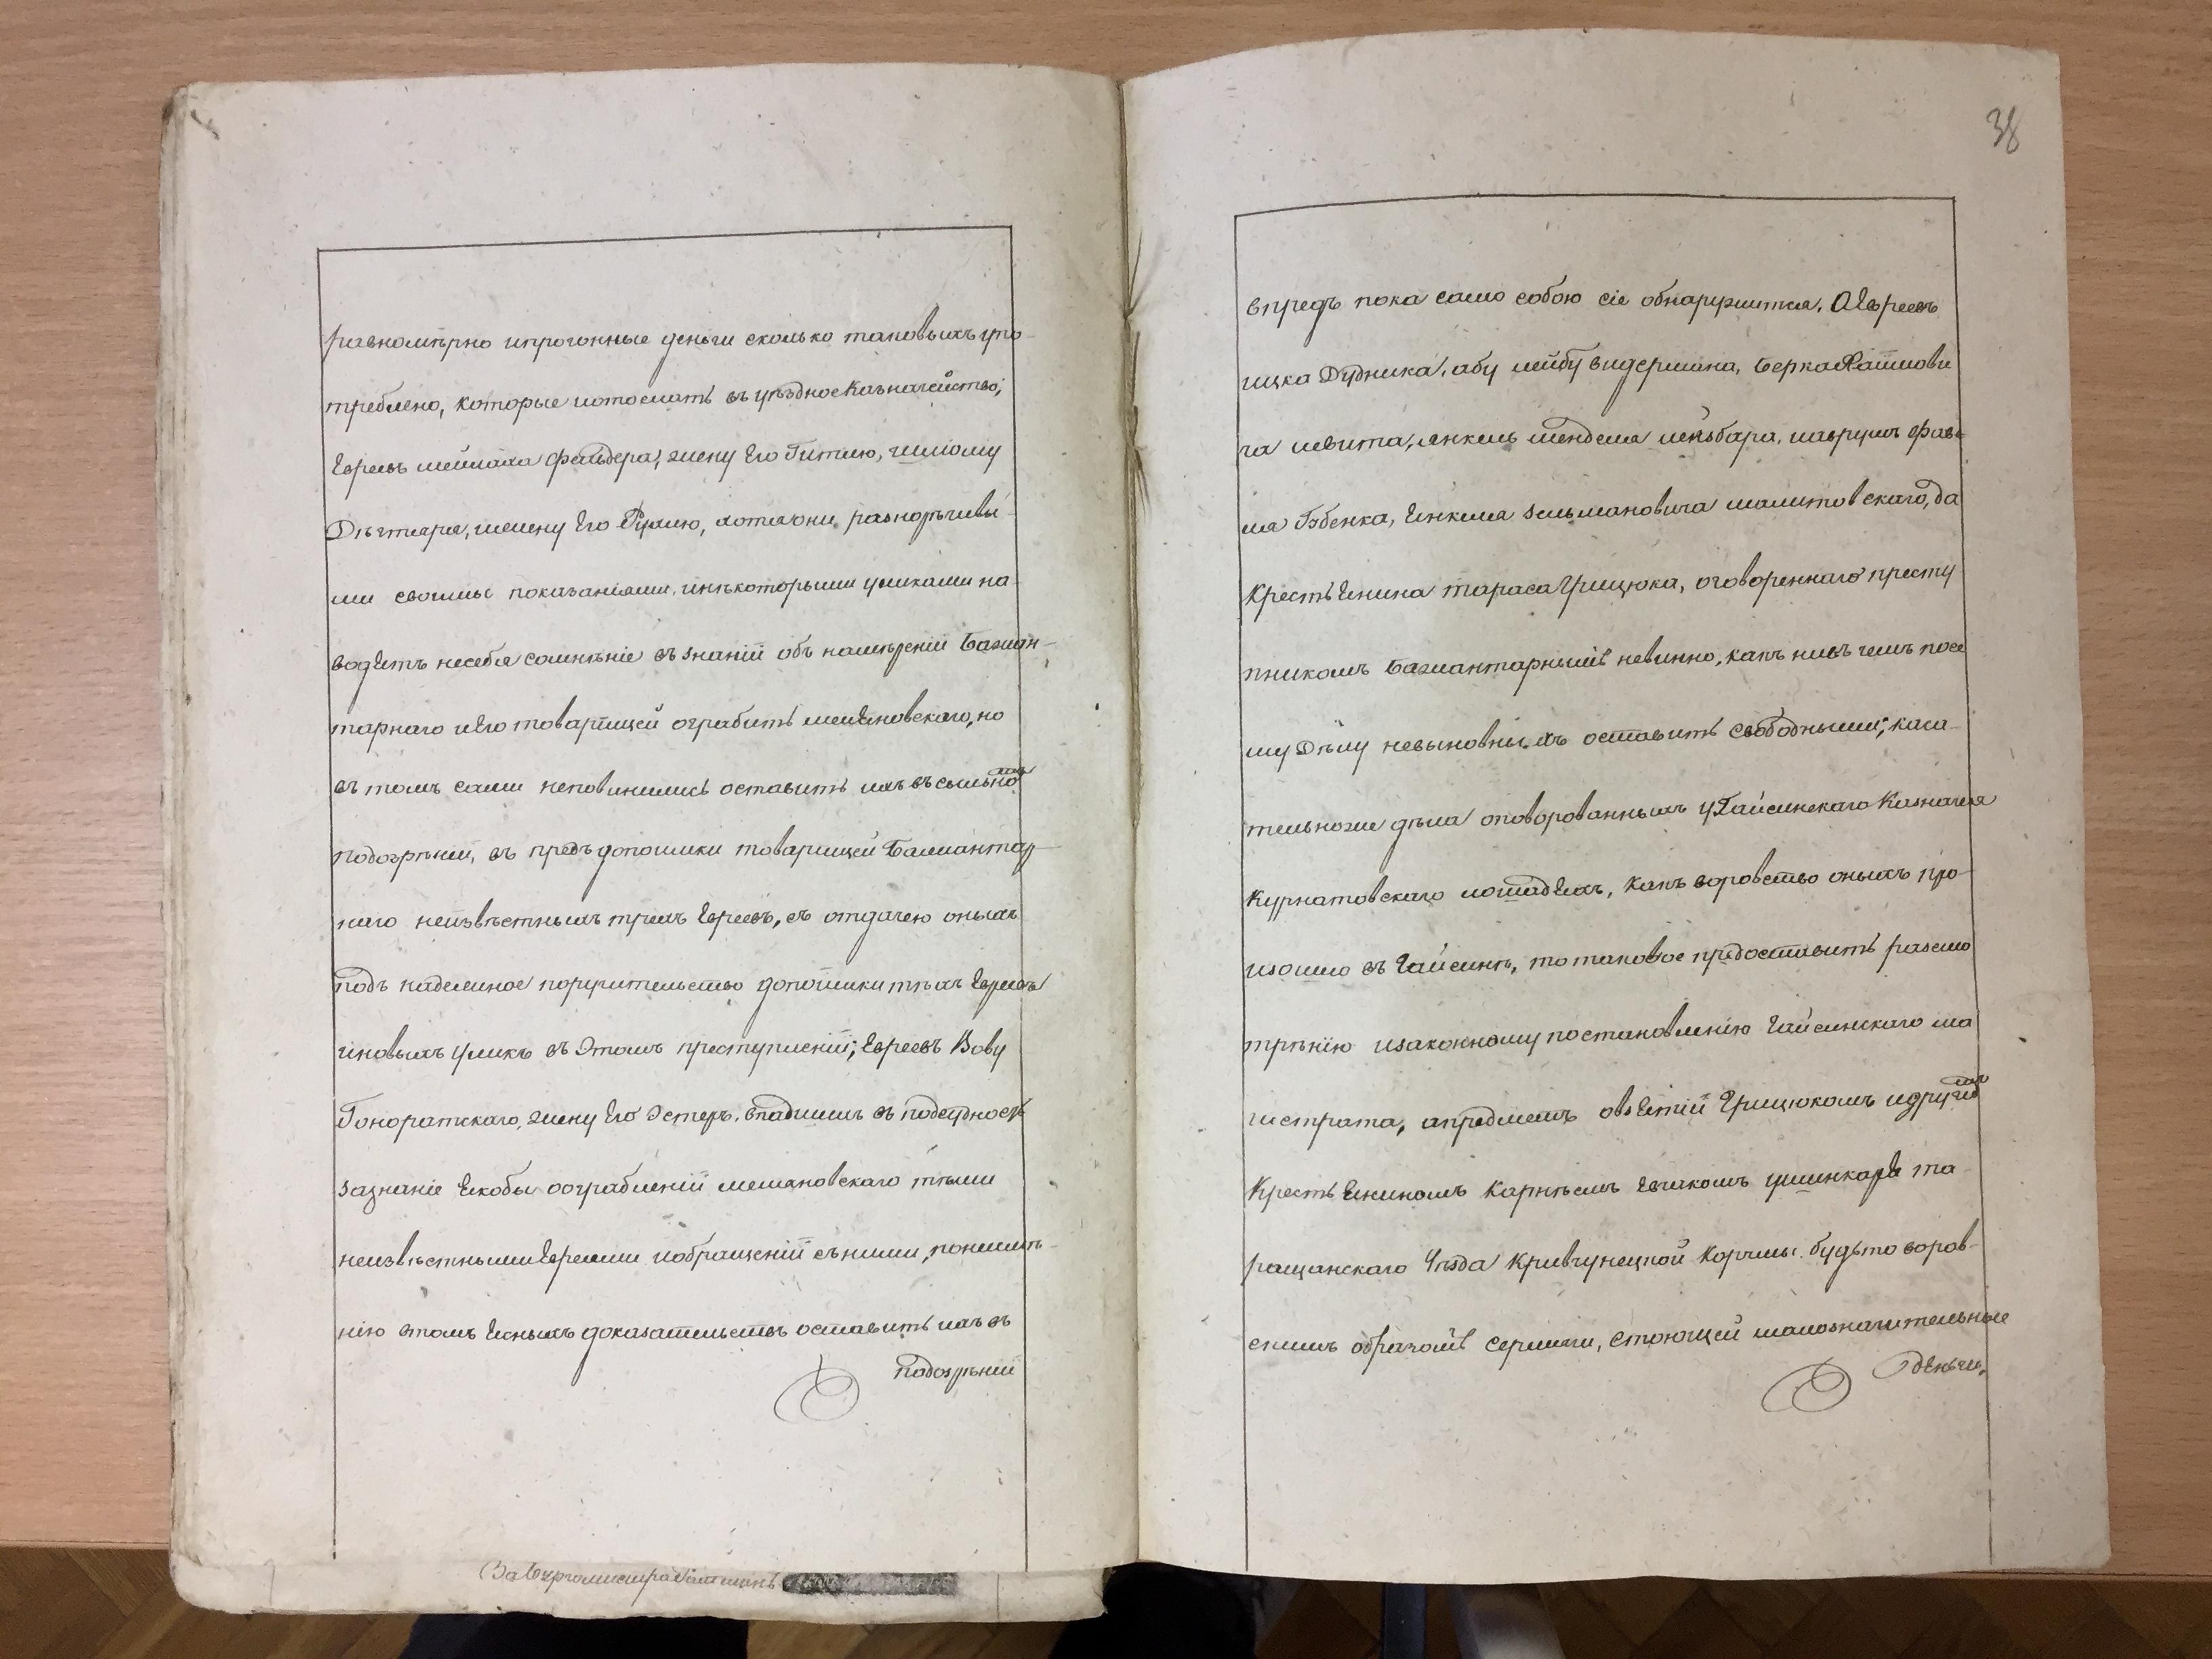 равномѣрно ипрогонные деньги сколько таковыхъ упо-
треблено, которые иотослать въ уѣздное Казначейство;
Евреевъ шейлаха фельдера, жену Его Гитлю, ишлому
Дѣхтяра, ижену Его Рухлю, хотя они разнорѣчивы-
ми своими показаніями, инѣкоторыми уликами на-
водЕтъ насебя сомнѣніе въ знаній объ намѣреній Бахман-
тарнаго иЕго товарищей ограбить мешЕновскаго, но
въ томъ сами неповинились оставить ихъ въ сильномъ
подозрѣніи, въ предь допоимки товарищей Бахмантар-
наго неизвѣстныхъ трехъ Евреевъ, съ отдачею оныхъ
подъ надежное поручительство допоимки тѣхъ Евреевъ
иновыхъ уликъ въ Этомъ преступленіи; Евреевъ Вову
Гоноратскаго, жену Его Эстеръ, впадшихъ въ подсудность
зазнаніе Екобы оограбленій мешановскаго тѣми
неизвѣстными Евреями иобращеній сними, понеимѣ-
нію втомъ Ексныхъ доказательствъ оставить ихъ въ
подозрѣніи
38
впредъ пока само собою сіе обнаружится, А Евреевъ
ицка Дудника, абу лейбу видермана, Берка Хаимови
ча левита, Енкель менделя
Енкеля зельмановича малитовскаго, да
КрестьЕнина тараса Грицюка, оговореннаго престу-
пникомъ Бахмантарнымъ невинно, какъ нивъ чемъ посе
му Дѣлу невиновныхъ оставить свободными; каса-
тельноже дѣла оповорованныхъ уГайсинскаго Казначея
Курнатовскаго лошадЕхъ, какъ воровство оныхъ про-
изошло въ Гайсинѣ, то таковое предоставить разсмо
трѣнію изаконному постановленію Гайсинскаго ма
гистрата, апредметъ овзЕтій Грицюкомъ идругимъ
КрестьЕниномъ Карнѣемъ ушинкарЕ та-
ращанскаго Уѣзда Кривчунецкой Корчмы будьто воров-
скимъ образомъ сермяги, стоющей малозначительные
дЕньги,